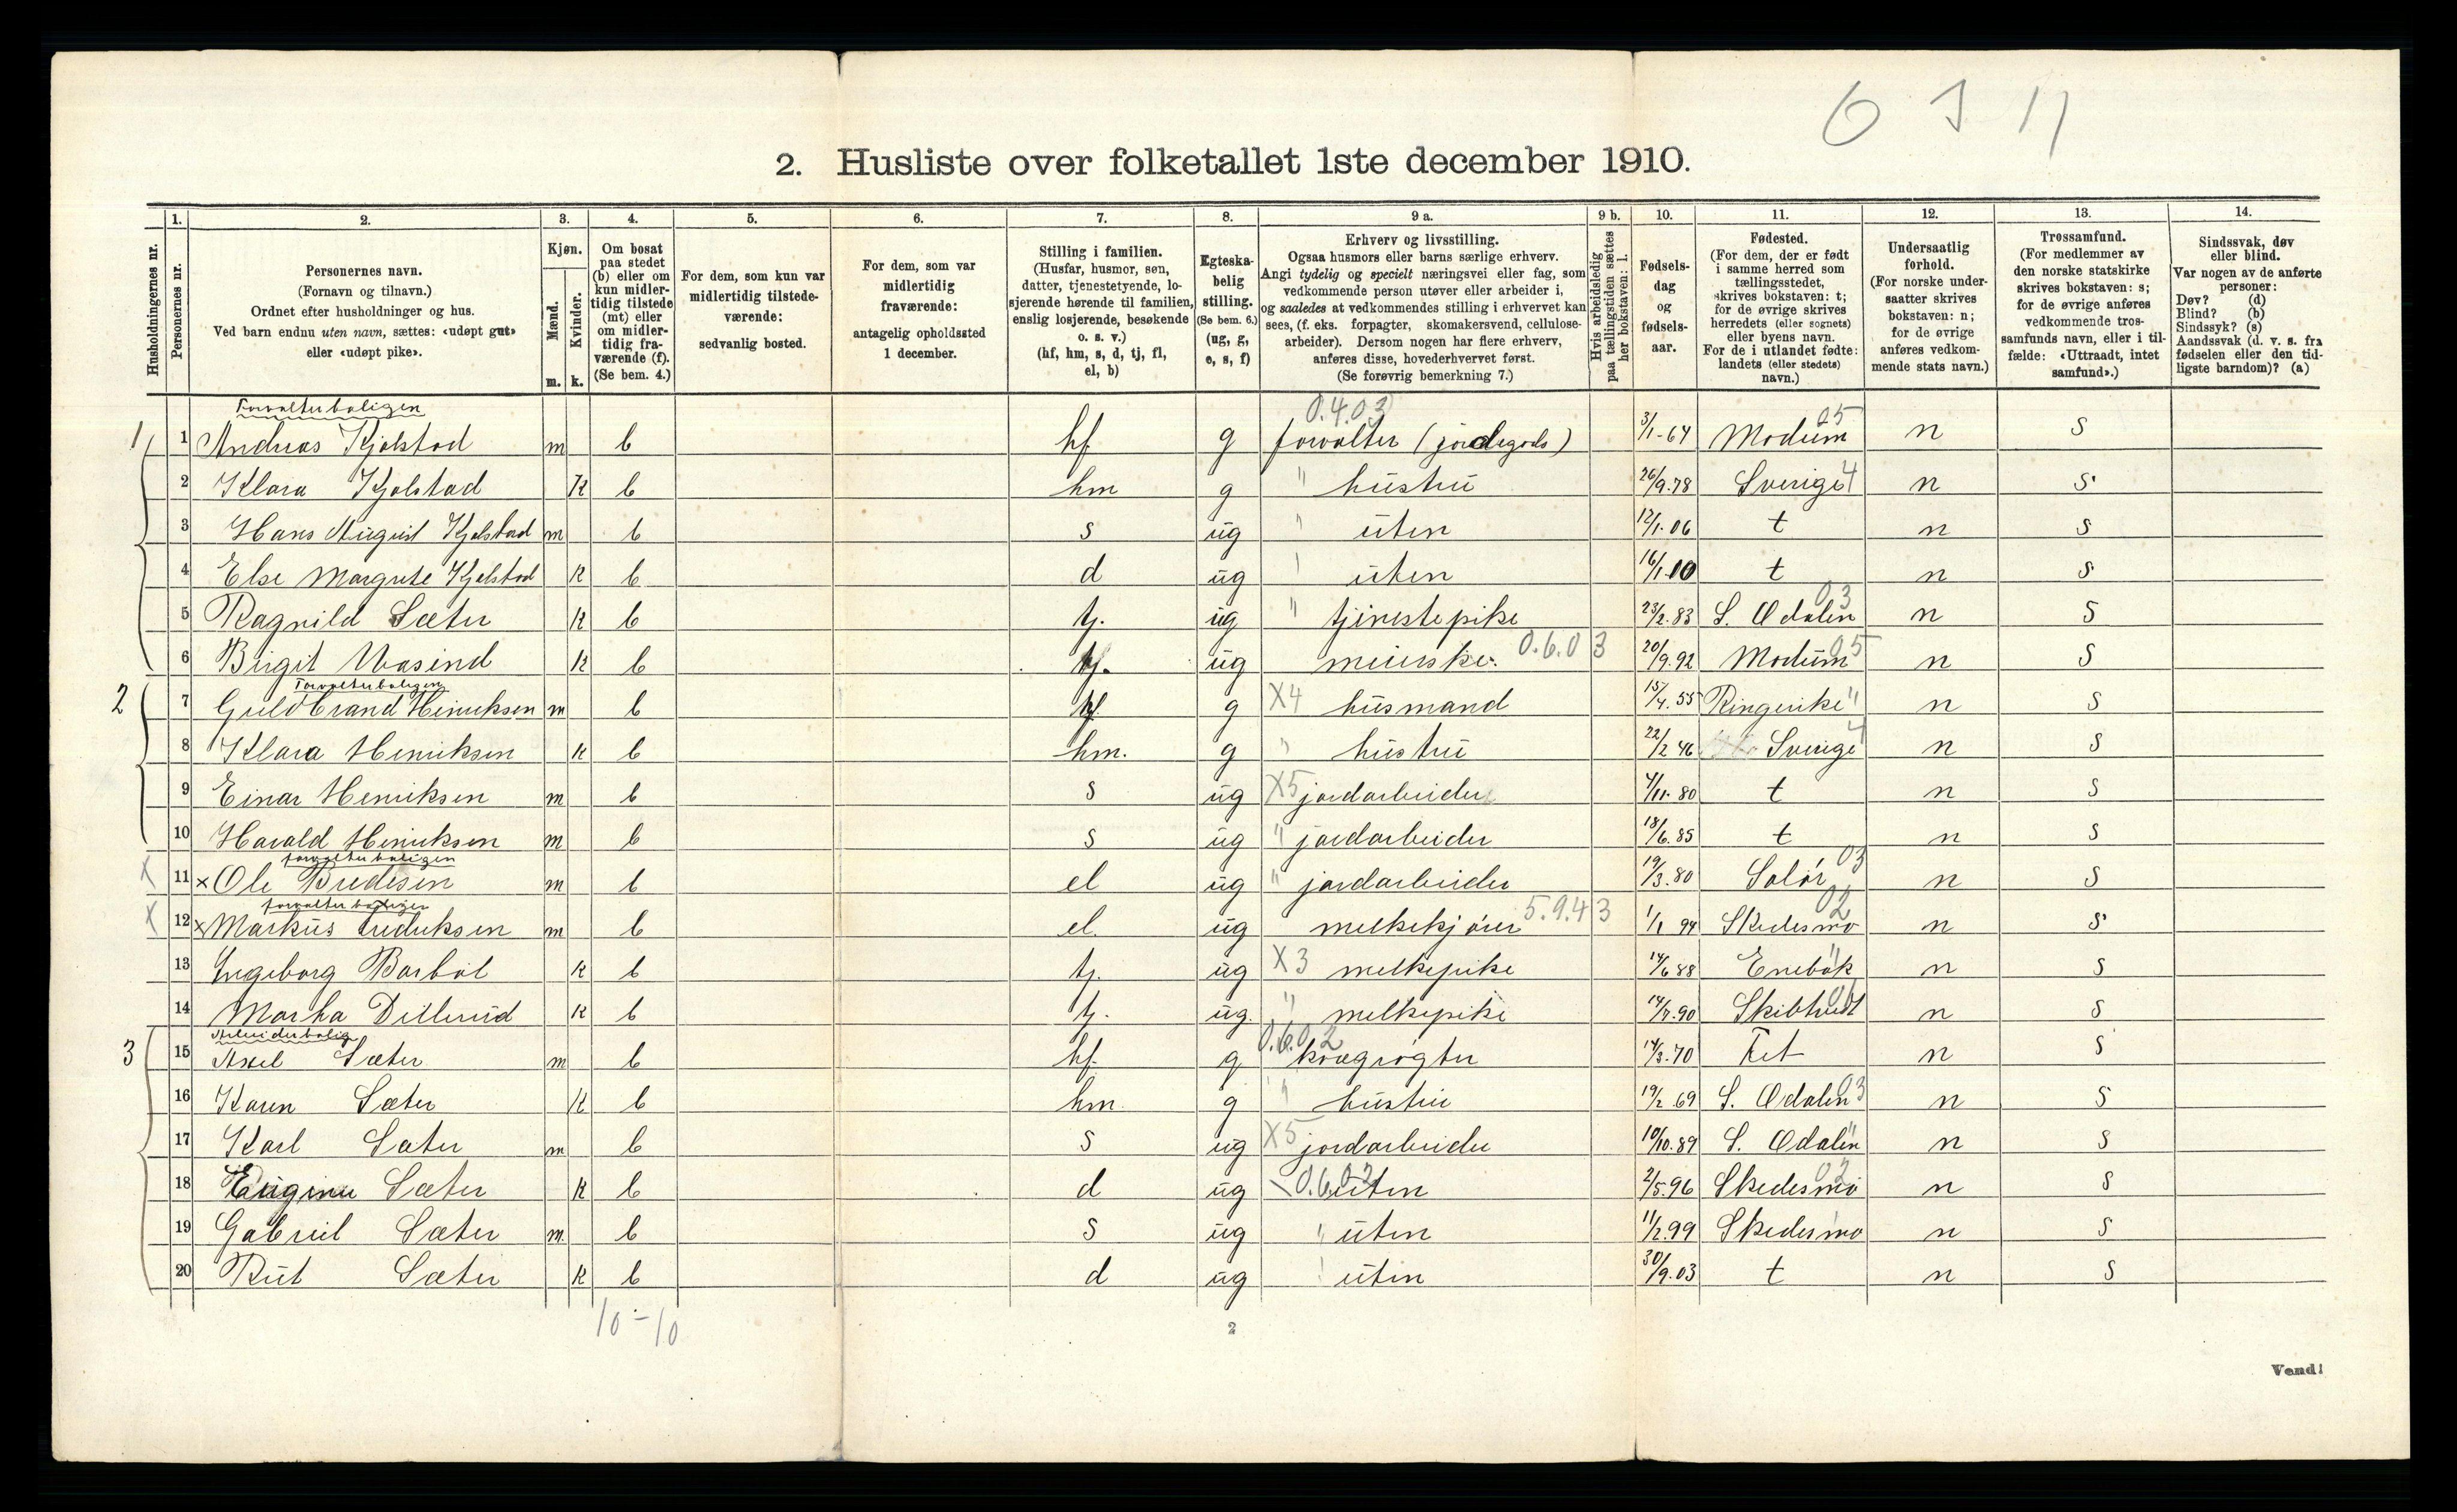 6 5 11
2. Husliste over folketallet 1ste december 1910.
1. 2. 3. 4. 5. 6. 7. 8. 9 a. 9 b. 10. 11. 12. 13. 14.
Husholdningernes nr.
Personernes nr.
Personernes navn.
(Fornavn og tilnavn.)
Ordnet efter husholdninger og hus.
Ved barn endnu uten navn, sættes: «udøpt gut»
eller «udøpt pike».
Kjøn.
Mænd.
Kvinder.
m. k.
Om bosat
paa stedet
(b) eller om
kun midler-
tidig tilstede
(mt) eller
om midler-
tidig fra-
værende (f).
(Se bem. 4.)
For dem, som kun var
midlertidig tilstede-
værende:
sedvanlig bosted.
For dem, som var
midlertidig
fraværende:
antagelig opholdssted
1 december.
Stilling i familien.
(Husfar, husmor, søn,
datter, tjenestetyende, lo-
sjerende hørende til familien,
enslig losjerende, besøkende
o. s. v.)
(hf, hm, s, d, tj, fl,
el, b)
Egteska-
belig
stilling.
(Se bem. 6.)
(ug, g,
e, s, f)
Erhverv og livsstilling.
Ogsaa husmors eller barns særlige erhverv.
Angi tydelig og specielt næringsvei eller fag, som
vedkommende person utøver eller arbeider i,
og saaledes at vedkommendes stilling i erhvervet kan
sees, (f. eks. forpagter, skomakersvend, cellulose-
arbeider). Dersom nogen har flere erhverv,
anføres disse, hovederhvervet først.
(Se forøvrig bemerkning 7.)
Hvis arbeidsledig
paa tællingstiden sættes
her bokstaven: l.
Fødsels-
dag
og
fødsels-
aar.
Fødested.
(For dem, der er født
i samme herred som
tællingsstedet,
skrives bokstaven: t;
for de øvrige skrives
herredets (eller sognets)
eller byens navn.
For de i utlandet fødte:
landets (eller stedets)
navn.)
Undersaatlig
forhold.
(For norske under-
saatter skrives
bokstaven: n;
for de øvrige
anføres vedkom-
mende stats navn.)
Trossamfund.
(For medlemmer av
den norske statskirke
skrives bokstaven: s;
for de øvrige anføres
vedkommende tros-
samfunds navn, eller i til-
fælde: «Uttraadt, intet
samfund».)
Sindssvak, døv
eller blind.
Var nogen av de anførte
personer:
Døv? (d)
Blind? (b)
Sindssyk? (s)
Aandssvak (d. v. s. fra
fødselen eller den tid-
ligste barndom)? (a)
Forvalterboligen 0.4.03 05
1 1 Andreas Kjølstad m b hf g forvalter (jordegods) 3/1-64 Modum n s
2 Klara Kjølstad k b hm g " hustru 26/9.78 Sverige 4 n s
3 Hans August Kjølstad m b s ug " uten 12/1.06 t n s
4 Else Margrete Kjølstad k b d ug " uten 16/1.10 t n s
5 Ragnild Sæter k b tj. ug " tjenestepike 23/2.83 S. Odalen 03 n s
6 Birgit k b tj. ug meierske. 0.6.03 20/9.92 Modum 05 n s
Forvalterboligen
2 7 Guldbrand Henriksen m b hf g X4 husmand 15/4.55 Ringerike " n s
8 Klara Henriksen k b hm. g " hustru 22/2 46 Sverige 4 n s
9 Einar Henriksen m b s ug X5 jordarbeider 4/11.80 t n s
10 Harald Henriksen m b s ug " jordarbeider 18/6.85 t n s
forvalterboligen
X 11 x Ole Bredesen m b el ug " jordarbeider 19/3.80 Solør 03 n s
forvalterboligen
X 12 x Markus m b el. ug melkekjører 5.9.43 1/1 94 Skedesmo 02 n s
13 Ingeborg Barbøl k b tj. ug X3 melkepike 14/6 88 Enebak " n s
14 Martha Dillerud k b tj. ug. " melkepike 14/7.90 n s
Arbeiderbolig 0.6.02
3 15 Axel Sæter m b hf g krøgrøgter 14/3.70 Fet n s
16 Karen Sæter k b hm. g " hustru 19/2.69 S. Odalen 03 n s
17 Karl Sæter m b s ug X5 jordarbeider 10/10.89 S. Odalen " n s
18 Sæter k b d ug 0.6.02 uten 2/5.96 Skedesmo 02 n s
19 Gabriel Sæter m. b s ug " uten 11/2.99 Skedesmo n s
20 Rut Sæter k b d ug " uten 30/9.03 t n s
10-10
2
Vend!